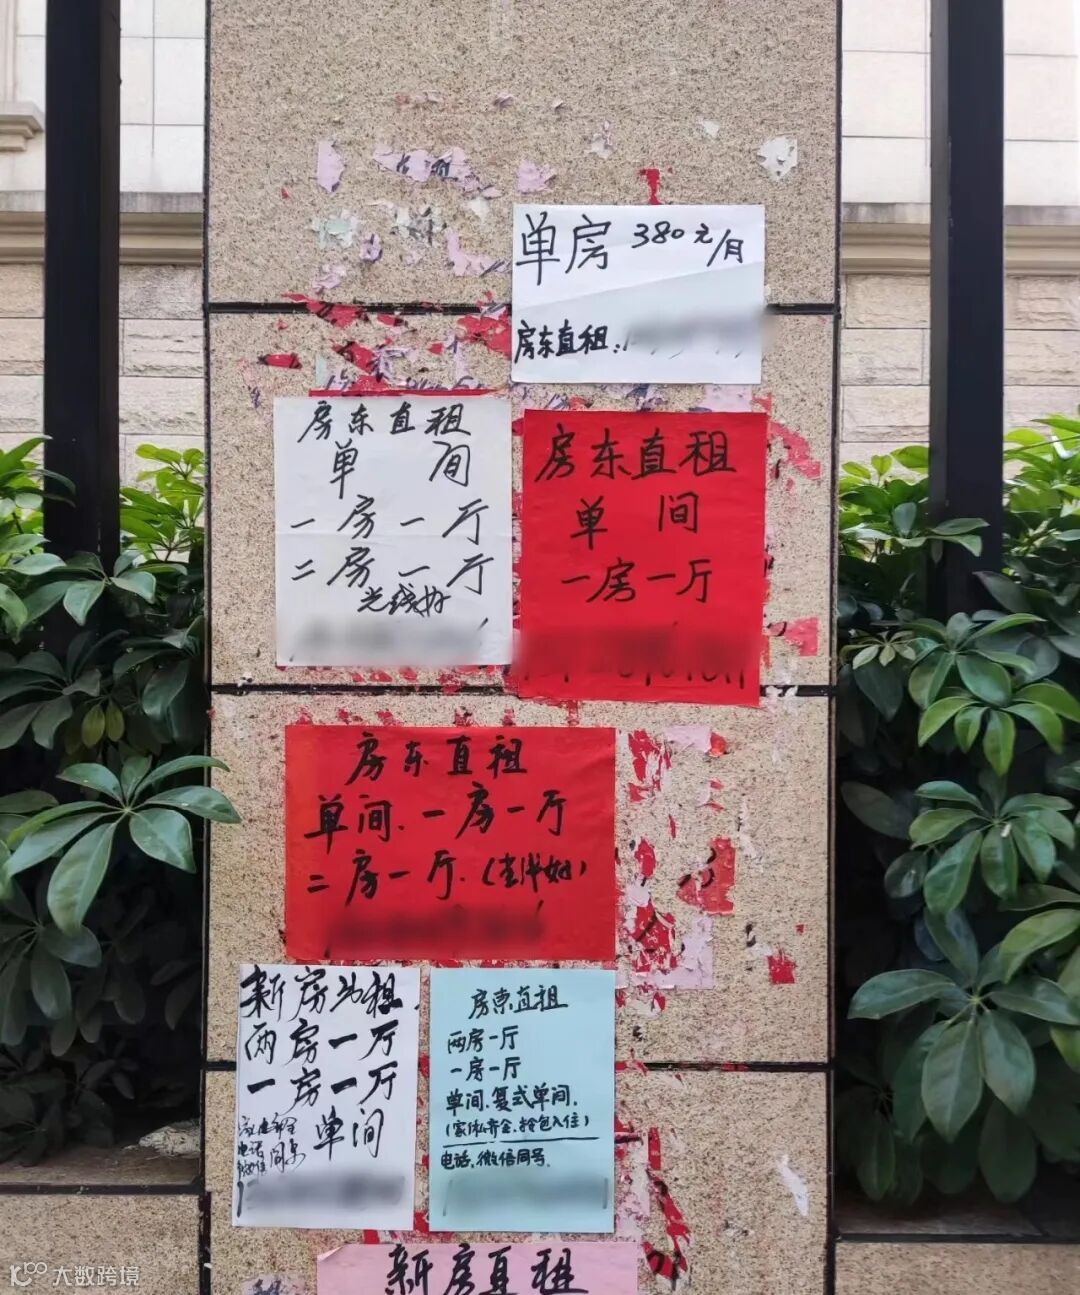 单房 380元/月
房东直租:
房东直租
单间
一房一厅
二房一厅
光线好
房东直租
单间
一房一厅
房东直租
单间.一房一厅
二房一厅.
新房出租
两房一厅
一房一厅
单间
电话
同号
房東直租
两房一厅
一房一厅
单间.复式单间.
(家俬齐全.拎包入住)
电话.微信同号.
新房直租
大数跨境